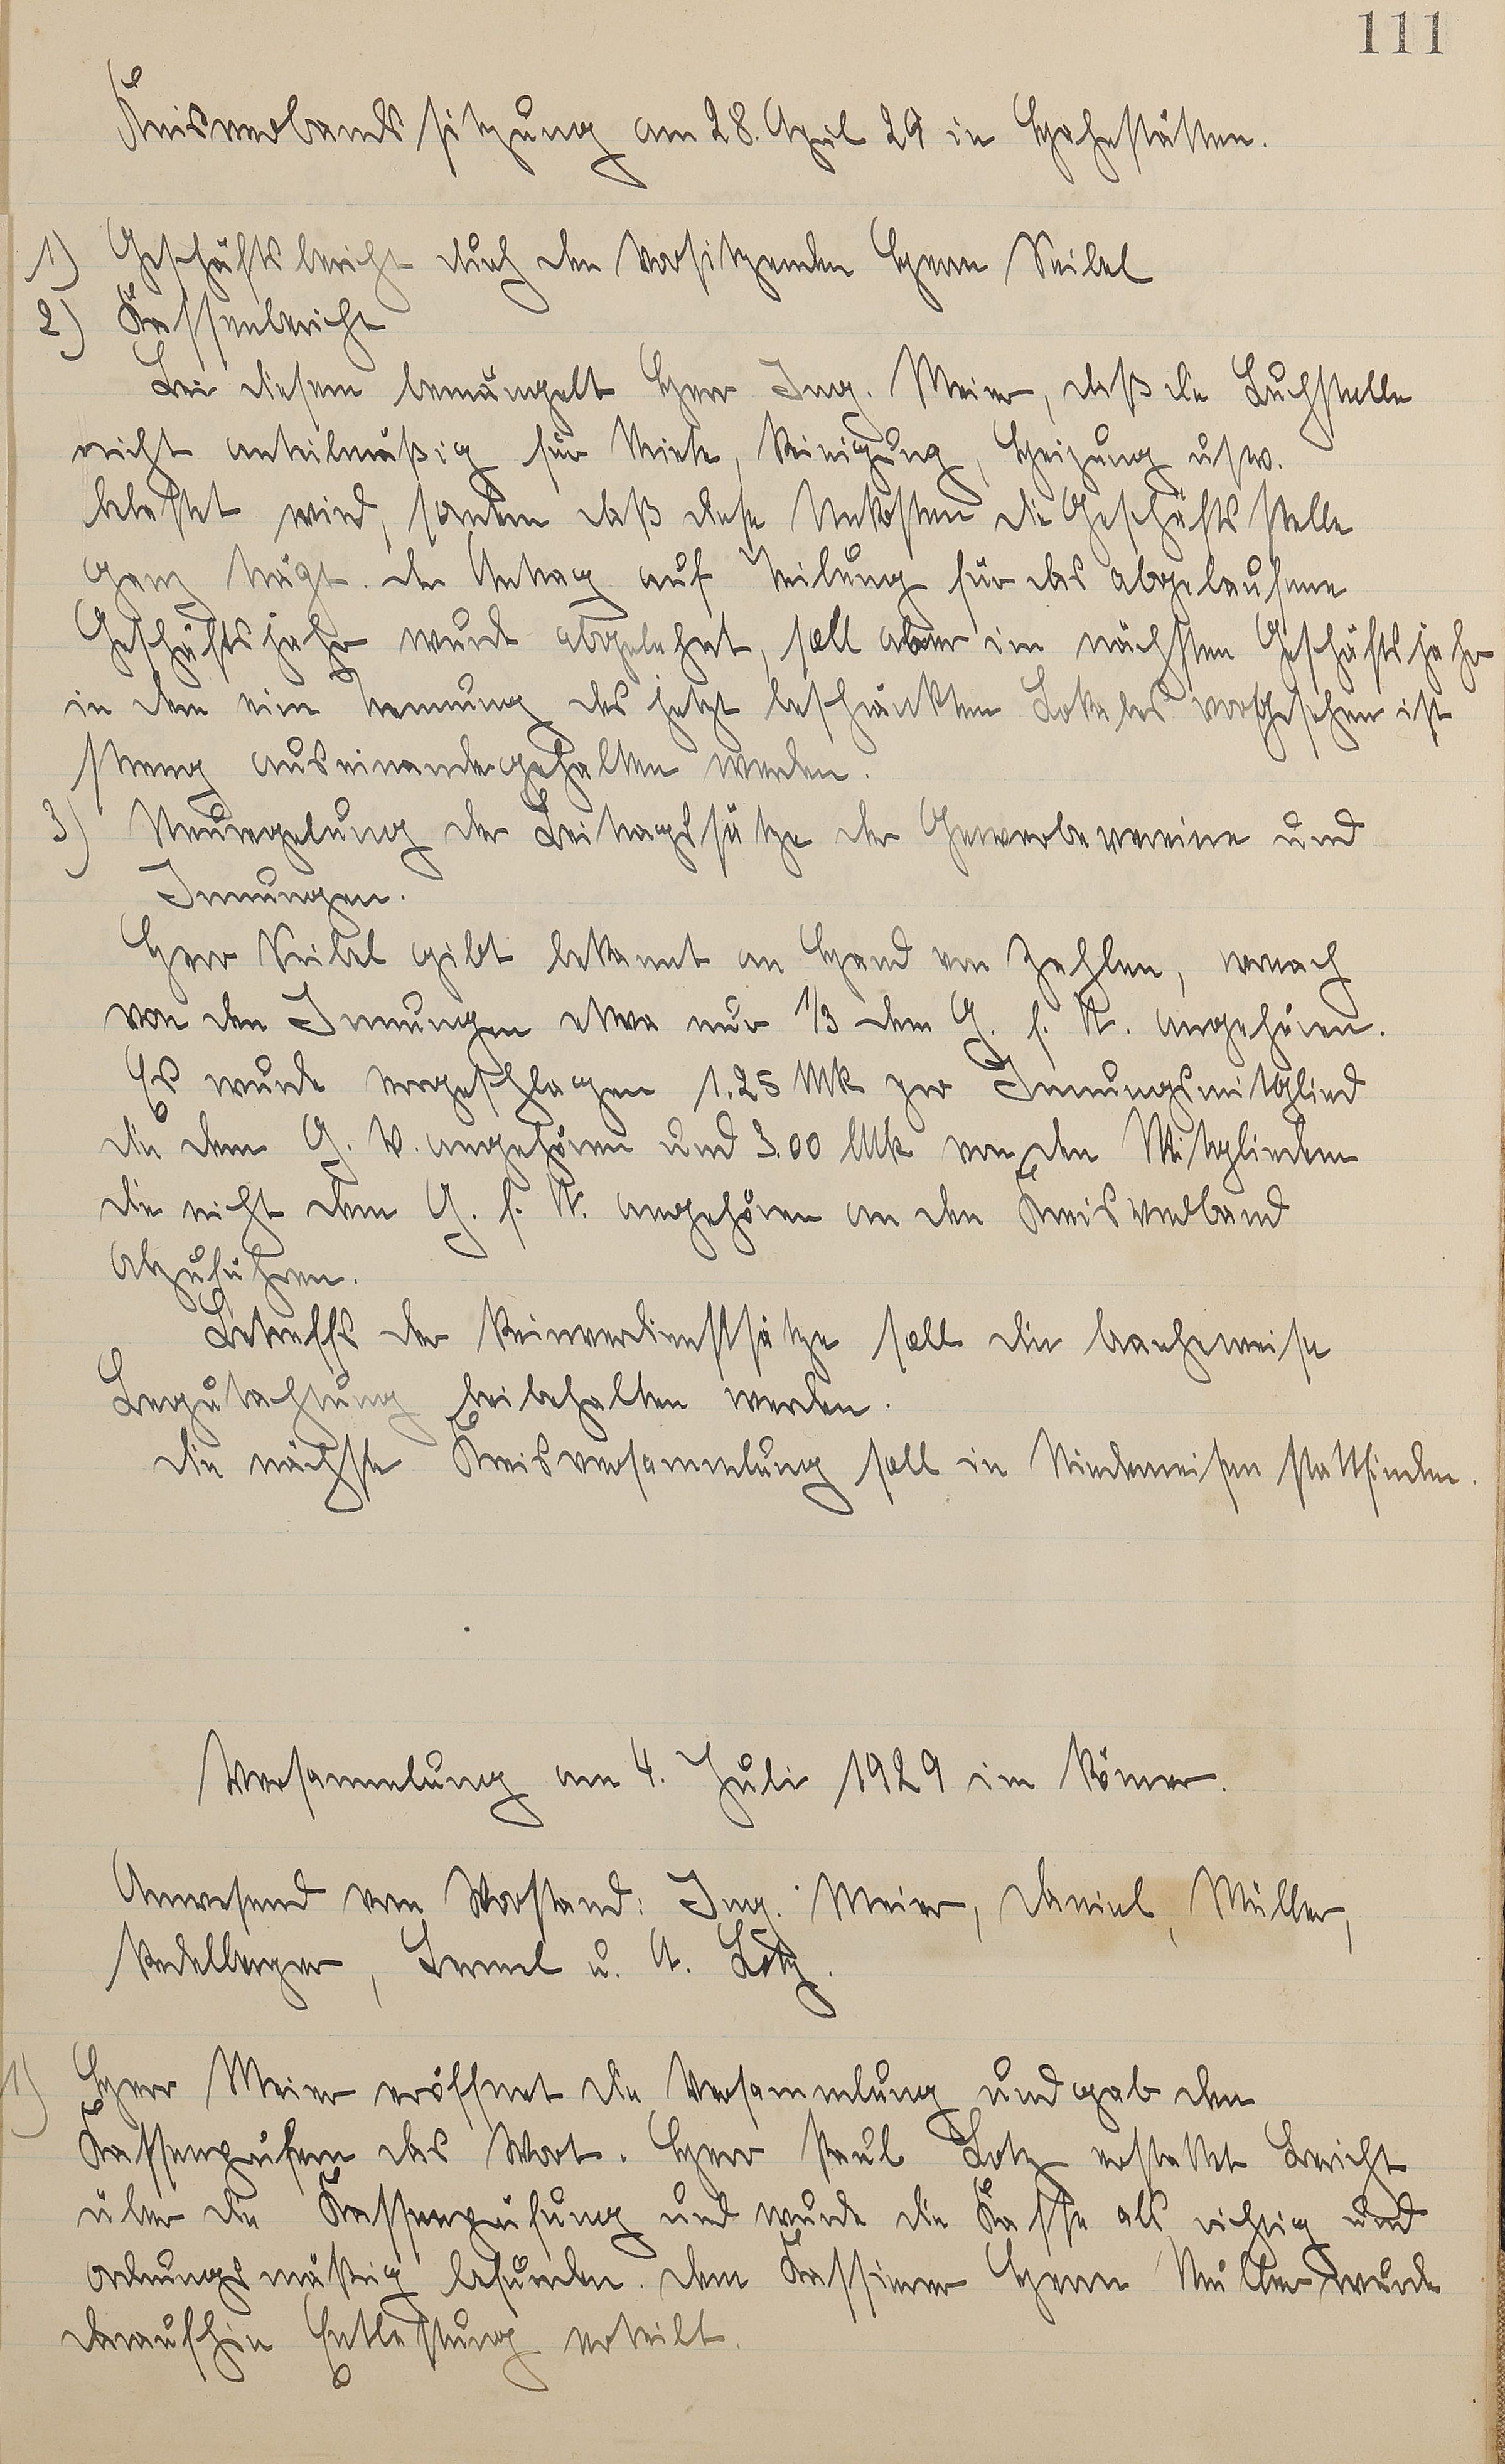 111
Kreisverbandssitzung am 28. April 29 in Hahnstätten.
1) Geschäftsbericht durch den Vorsitzenden Herrn Seibel
2) Kassenbericht
Bei diesem bemängelt Herr Ing. Meier, daß die Buchstelle
nicht anteilmäßig für Miete, Reinigung, Heizung usw.
belastet wird, sondern daß diese Unkosten die Geschäftsstelle
ganz trägt. Der Antrag auf Teilung für das abgelaufene
Geschäftsjahr wurde abgelehnt, soll aber im nächsten Geschäftsjahr
in dem eine Trennung des jetzt beschränkten Lokales vorgesehen ist
streng auseinandergehalten werden.
3) Neuregelung der Beitragssätze der Gewerbevereine und
Innungen.
Herr Seibel gibt bekannt an Hand von Zahlen, wonach
von den Innungen etwa nur 1/3 dem G. f. N. angehören.
Es wurde vorgeschlagen 1.25 Mk pro Innungsmitglied
die dem G. V. angehören und 3.00 Mk von den Mitgliedern
die nicht dem G. f. N. angehören an den Kreisverband
abzuführen.
Betreffs der Reinverdienstsätze soll die branchweise
Begutachtung beibehalten werden.
Die nächste Kreisversammlung soll in Niederneisen stattfinden.
Versammlung am 4. Juli 1929 im Römer.
Anwesend vom Vorstand: Ing. Meier, Daniel, Müller,
Kadelberger, Bremel u. A. Lotz.
1) Herr Meier eröffnet die Versammlung und gab den
Kassenprüfern das Wort. Herr Paul Lotz erstattet Bericht
über die Kassenprüfung und wurde die Kasse als richtig und
ordnungsmäßig befunden. Dem Kassierer Herrn Müller wurde
daraufhin Entlastung erteilt.